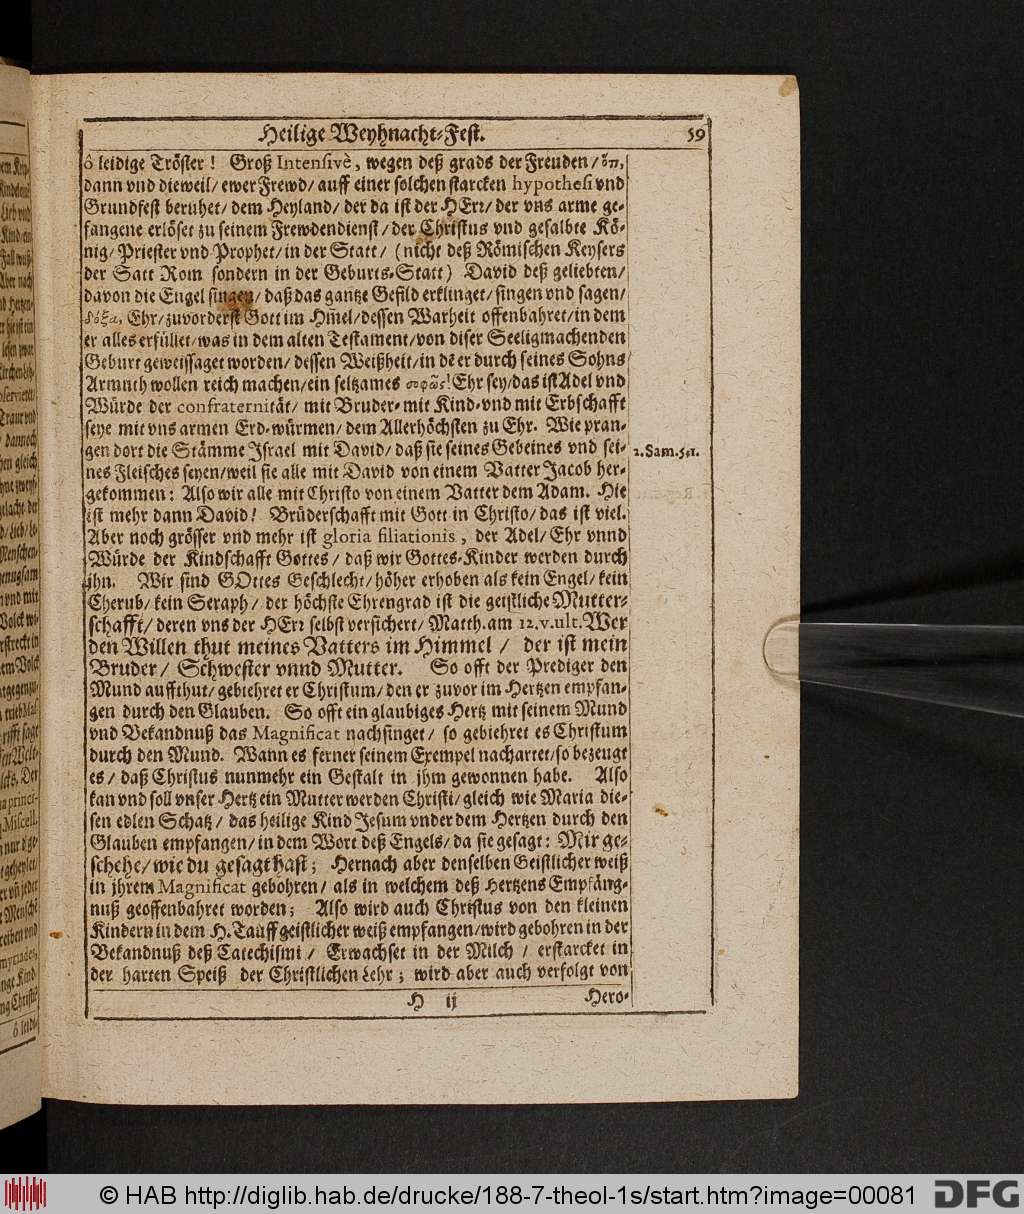 Heilige Weyhnacht-Fest. 59
ô leidige Tröster! Groß Intensivè, wegen deß grads der Freuden/ ὅτι,
dann vnd dieweil/ ewer Frewd/ auff einer solchen starcken hypothesi vnd
Grundfest beruhet/ dem Heyland/ der da ist der HErr/ der vns arme ge-
fangene erlöset zu seinem Frewdendienst/ der Christus vnd gesalbte Kö-
nig/ Priester vnd Prophet/ in der Statt/ (nicht deß Römischen Keysers
der Satt Rom sondern in der Geburts-Statt) David deß geliebten/
davon die Engel singen/ daß das gantze Gefild erklinget/ singen vnd sagen/
δόξα, Ehr/ zuvorderst Gott im Him̃el/ dessen Warheit offenbahret/ in dem
er alles erfüllet/ was in dem alten Testament/ von diser Seeligmachenden
Geburt geweissaget worden/ dessen Weißheit/ in dẽ er durch seines Sohns
Armuth wollen reich machen/ ein seltzames ! Ehr sey/ das ist Adel vnd
Würde der confraternität/ mit Bruder- mit Kind- vnd mit Erbschafft
seye mit vns armen Erd-würmen/ dem Allerhöchsten zu Ehr. Wie pran-
gen dort die Stämme Israel mit David/ daß sie seines Gebeines vnd sei-
2. Sam. 5.1.
nes Fleisches seyen/ weil sie alle mit David von einem Vatter Jacob her-
gekommen: Also wir alle mit Christo von einem Vatter dem Adam. Hie
ist mehr dann David! Brüderschafft mit Gott in Christo/ das ist viel.
Aber noch grösser vnd mehr ist gloria filiationis, der Adel/ Ehr vnnd
Würde der Kindschafft Gottes/ daß wir Gottes-Kinder werden durch
ihn. Wir sind GOttes Geschlecht/ höher erhoben als kein Engel/ kein
Cherub/ kein Seraph/ der höchste Ehrengrad ist die geistliche Mutter-
schafft/ deren vns der HErr selbst versichert/ Matth. am 12. v. ult. Wer
den Willen thut meines Vatters im Himmel/ der ist mein
Bruder/ Schwester vnnd Mutter. So offt der Prediger den
Mund auffthut/ gebiehret er Christum/ den er zuvor im Hertzen empfan-
gen durch den Glauben. So offt ein glaubiges Hertz mit seinem Mund
vnd Bekandnuß das Magnificat nachsinget/ so gebiehret es Christum
durch den Mund. Wann es ferner seinem Exempel nachartet/ so bezeugt
es/ daß Christus nunmehr ein Gestalt in jhm gewonnen habe. Also
kan vnd soll vnser Hertz ein Mutter werden Christi/ gleich wie Maria die-
sen edlen Schatz/ das heilige Kind Jesum vnder dem Hertzen durch den
Glauben empfangen/ in dem Wort deß Engels/ da sie gesagt: Mir ge-
schehe/ wie du gesagt hast; Hernach aber denselben Geistlicher weiß
in jhrem Magnificat gebohren/ als in welchem deß Hertzens Empfäng-
nuß geoffenbahret worden; Also wird auch Christus von den kleinen
Kindern in dem H. Tauff geistlicher weiß empfangen/ wird gebohren in der
Bekandnuß deß Catechismi/ Erwachset in der Milch/ erstarcket in
der harten Speiß der Christlichen Lehr; wird aber auch verfolgt von
H ij Hero-
© HAB http://diglib.hab.de/drucke/188-7-theol-1s/start.htm?image=00081
DFG